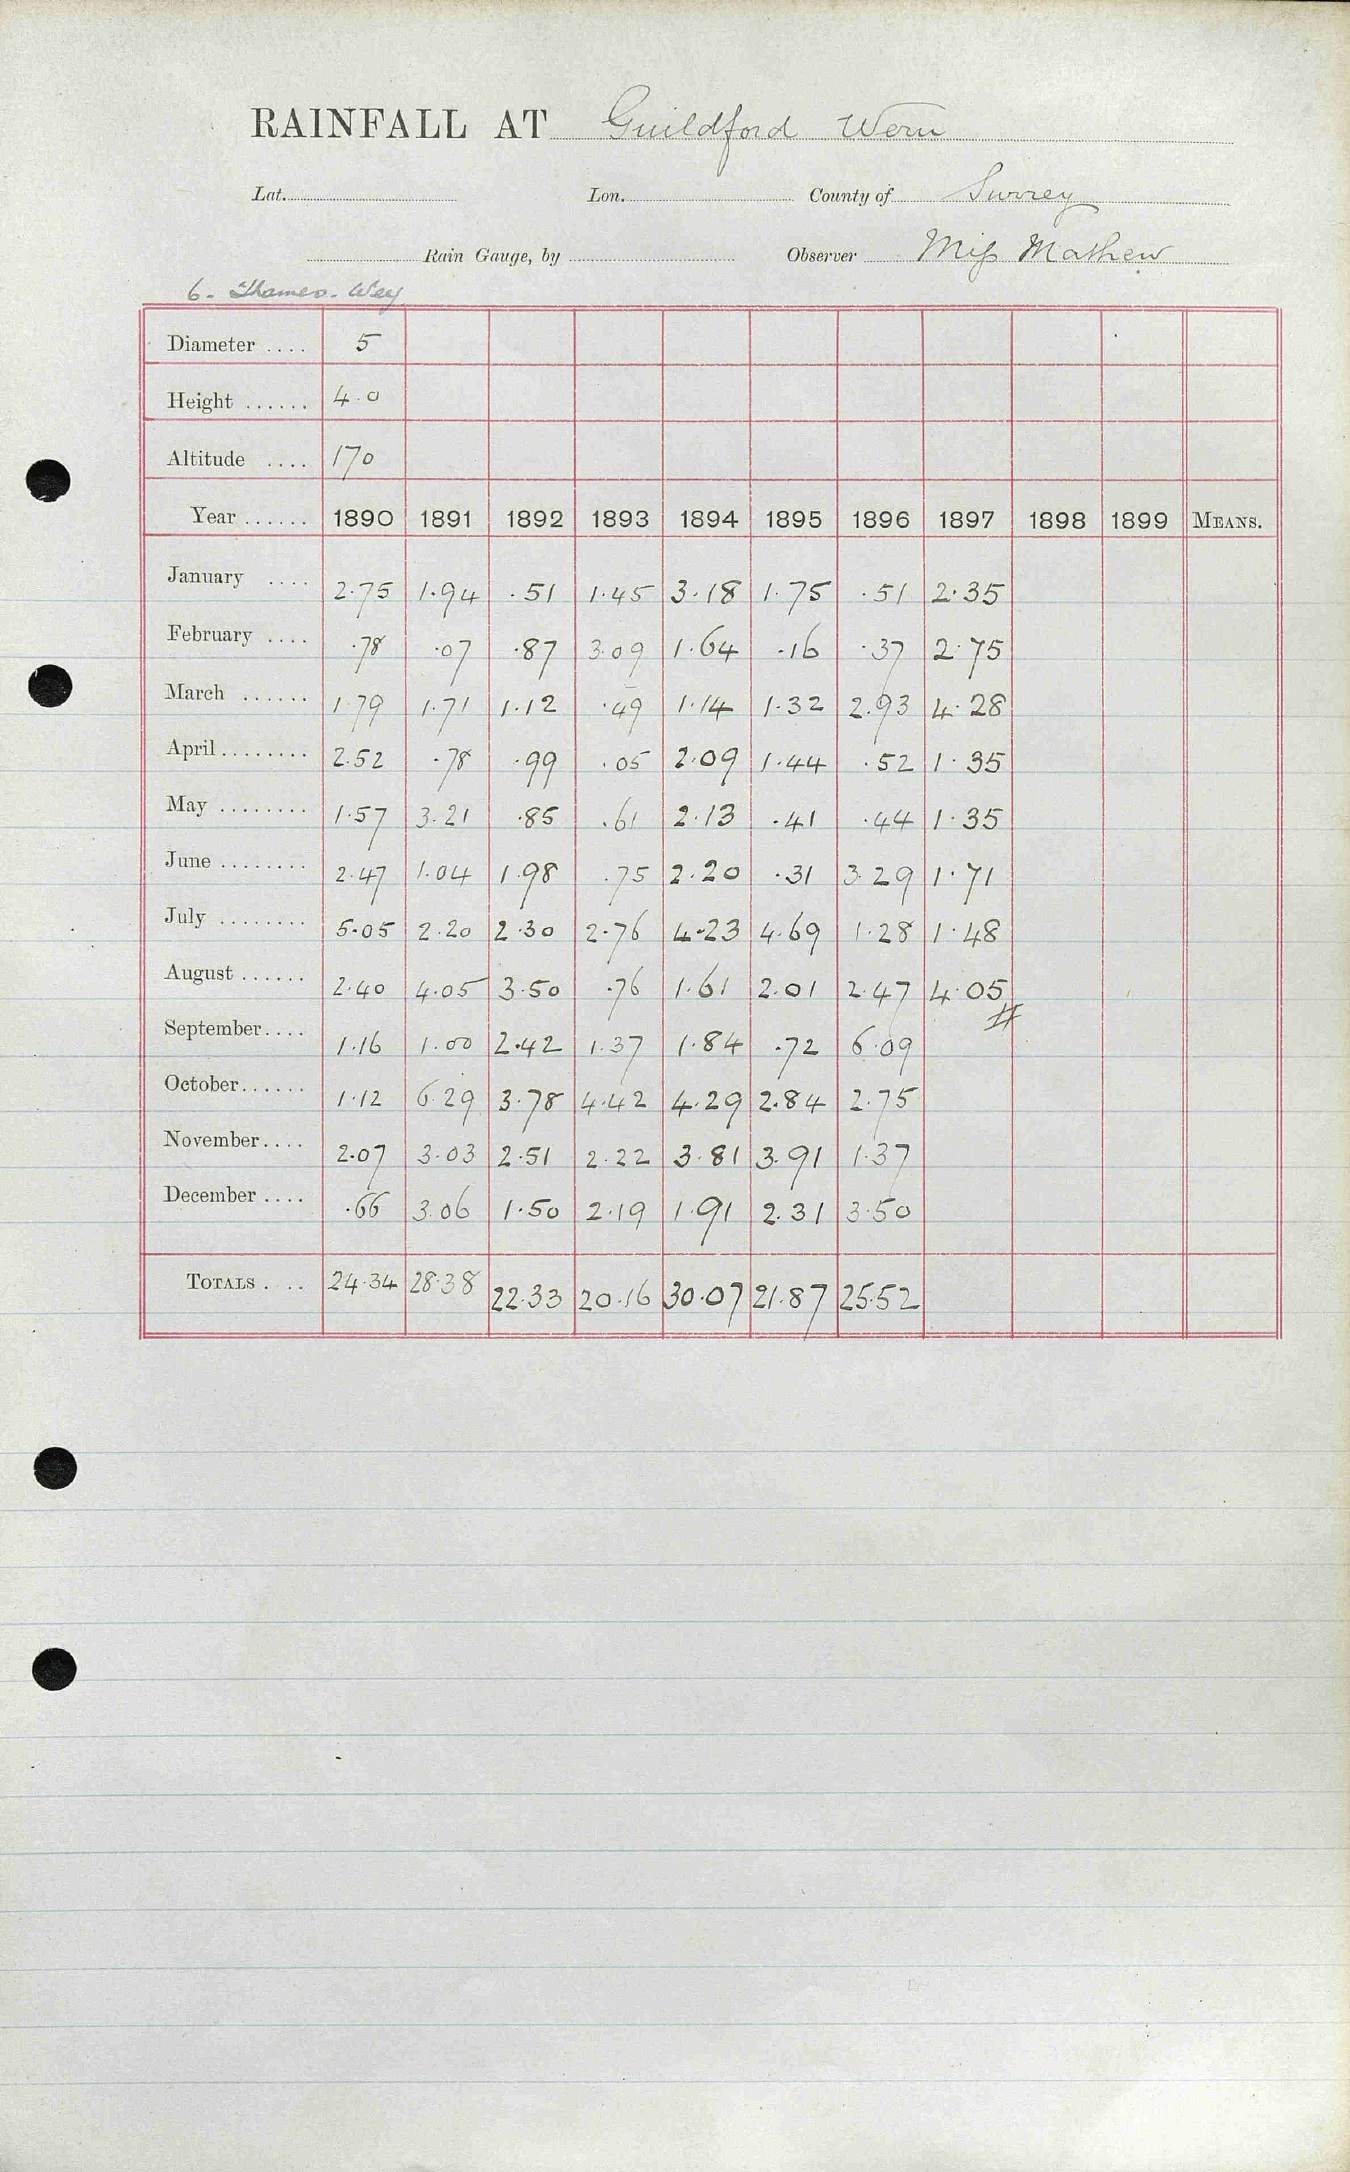 RAINFALL AT Guildford Wern
Lat. Lon. County of Surrey
Rain Gauge, by Observer Miss Mathew
6. Thames. Wey
Diameter .... 5
Height ...... 4.0
Altitude .... 170
Year ...... 1890 1891 1892 1893 1894 1895 1896 1897 1898 1899 MEANS.
January .... 2.75 1.94 .51 1.45 3.18 1.75 .51 2.35
February .... .78 .07 .87 3.09 1.64 .16 .37 2.75
March ...... 1.79 1.71 1.12 .49 1.14 1.32 2.93 4.28
April ........ 2.52 .78 .99 .05 2.09 1.44 .52 1.35
May ........ 1.57 3.21 .85 .61 2.13 .41 .44 1.35
June ........ 2.47 1.04 1.98 .75 2.20 .31 3.29 1.71
July ........ 5.05 2.20 2.30 2.76 4.23 4.69 1.28 1.48
August ...... 2.40 4.05 3.50 .76 1.61 2.01 2.47 4.05 #
September .... 1.16 1.00 2.42 1.37 1.84 .72 6.09
October ...... 1.12 6.29 3.78 4.42 4.29 2.84 2.75
November .... 2.07 3.03 2.51 2.22 3.81 3.91 1.37
December .... .66 3.06 1.50 2.19 1.91 2.31 3.50
TOTALS .... 24.34 28.38 22.33 20.16 30.07 21.87 25.52